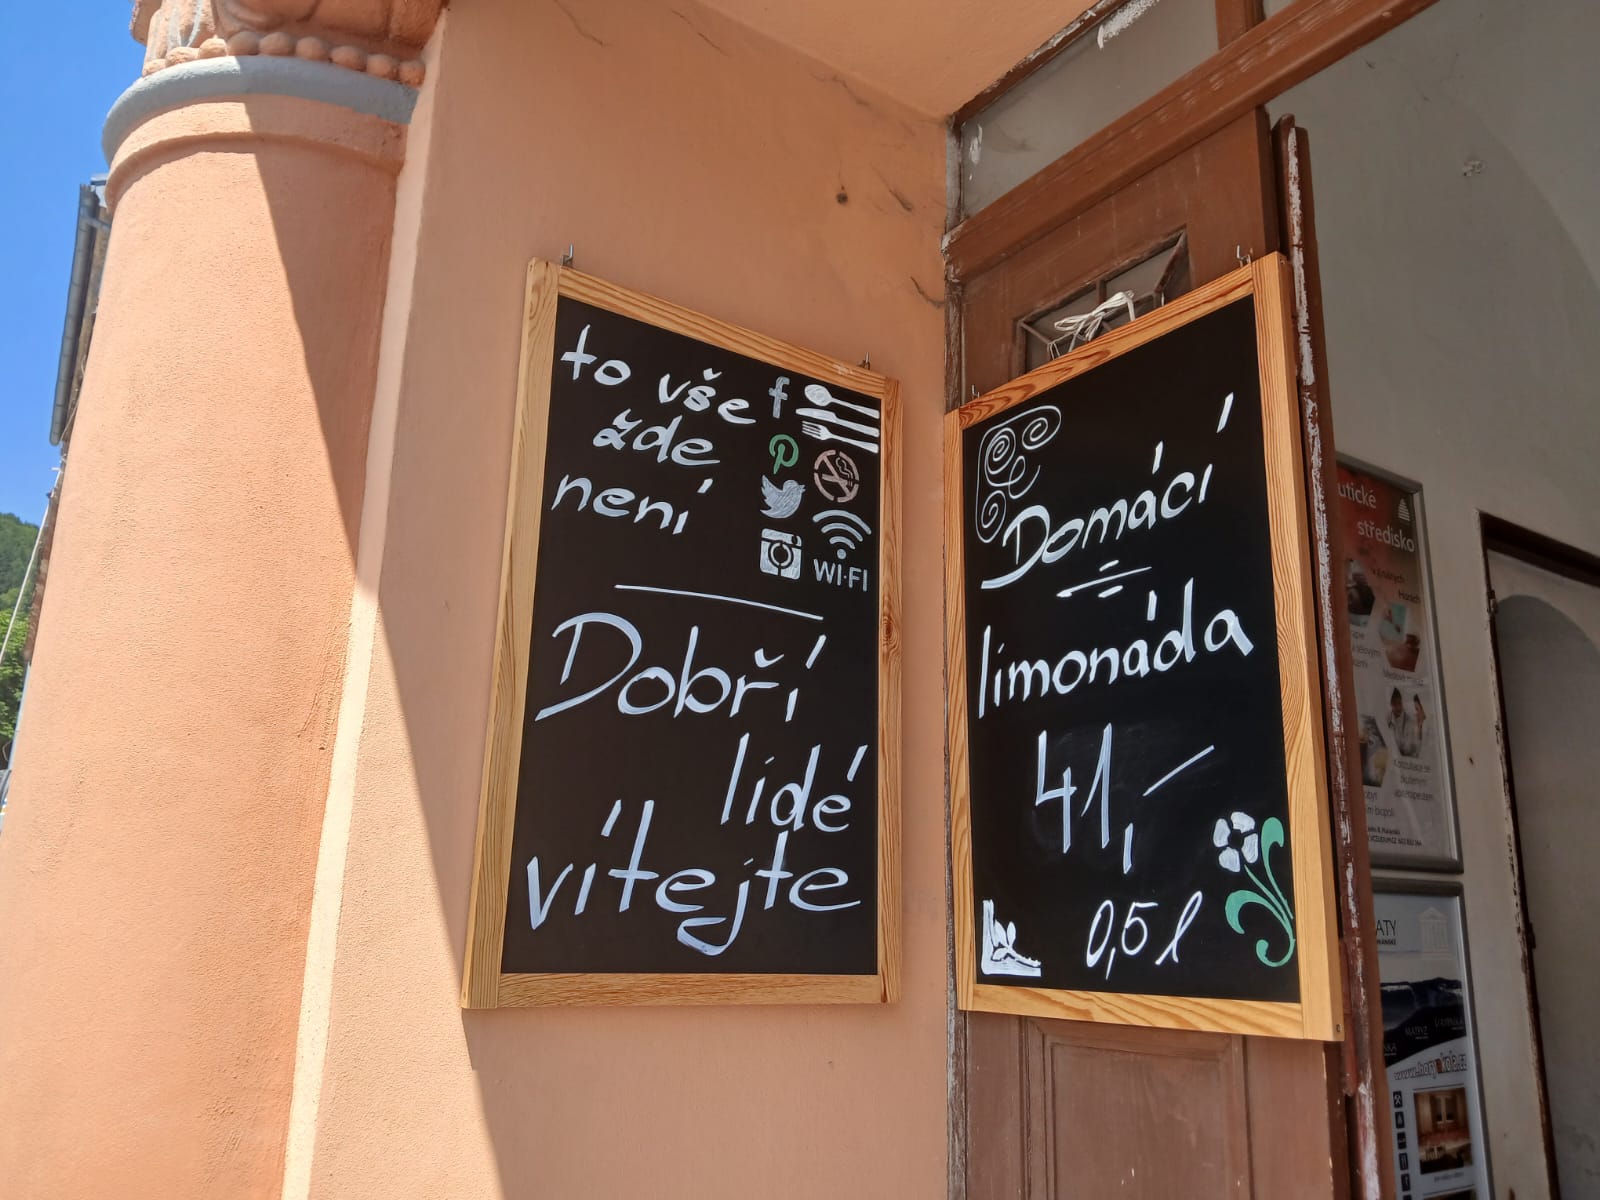 to vše
žde
není
WI-FI
Dobří
lidé
vítejte
Domácí
limonáda
41,-
0,5 l
utické
středisko
Horách